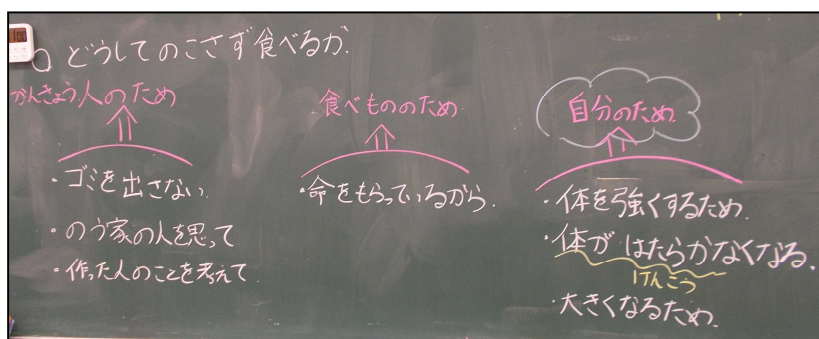 どうしてのこさず食べるか.
かんきょう,人のため
・ゴミを出さない.
・のう家の人を思って
・作った人のことを考えて
食べもののため
・命をもらっているから.
自分のため
・体を強くするため.
・体がはたらかなくなる.
けんこう
・大きくなるため.